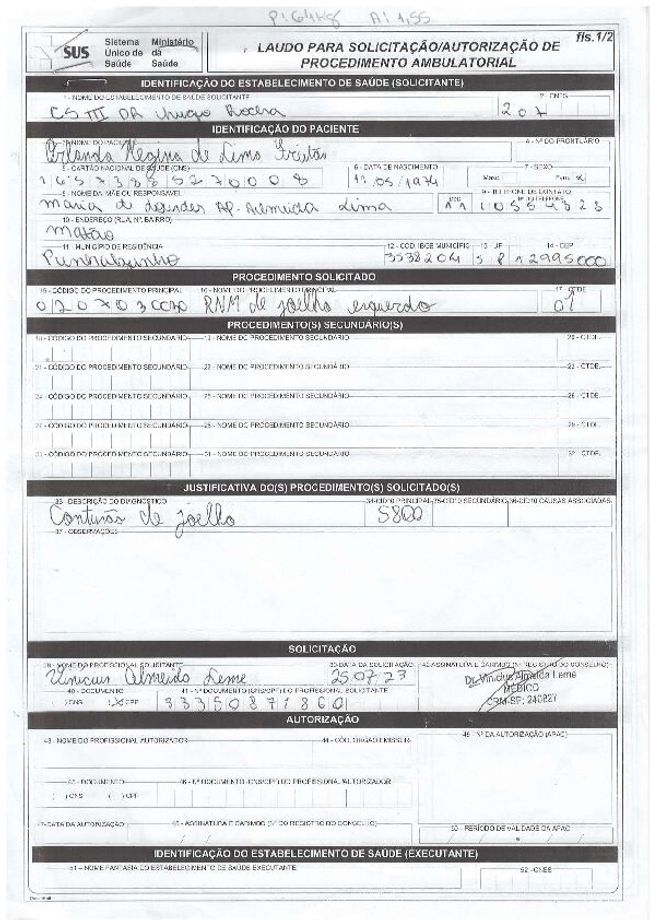 P: 64Kg A: 1,55
fls. 1/2
SUS Sistema Único de Saúde Ministério da Saúde
LAUDO PARA SOLICITAÇÃO/AUTORIZAÇÃO DE PROCEDIMENTO AMBULATORIAL
IDENTIFICAÇÃO DO ESTABELECIMENTO DE SAÚDE (SOLICITANTE)
1 - NOME DO ESTABELECIMENTO DE SAÚDE SOLICITANTE 2 - CNES
CS III DR Hugo Rocha 207
IDENTIFICAÇÃO DO PACIENTE
3 - NOME DO PACIENTE 4 - Nº DO PRONTUÁRIO
Regina de Lima Freitas
5 - CARTÃO NACIONAL DE SAÚDE (CNS) 6 - DATA DE NASCIMENTO 7 - SEXO
/05/1974 Masc. Fem.
8 - NOME DA MÃE OU RESPONSÁVEL 9 - TELEFONE DE CONTATO
DDD Nº DO TELEFONE
Maria de Lima 11
10 - ENDEREÇO (RUA, Nº, BAIRRO)
Matão
11 - MUNICÍPIO DE RESIDÊNCIA 12 - CÓD. IBGE MUNICÍPIO 13 - UF 14 - CEP
Pinhalzinho 3538204 SP 12995000
PROCEDIMENTO SOLICITADO
15 - CÓDIGO DO PROCEDIMENTO PRINCIPAL 16 - NOME DO PROCEDIMENTO PRINCIPAL 17 - QTDE
0207030030 RNM de joelho esquerdo 01
PROCEDIMENTO(S) SECUNDÁRIO(S)
18 - CÓDIGO DO PROCEDIMENTO SECUNDÁRIO 19 - NOME DO PROCEDIMENTO SECUNDÁRIO 20 - QTDE.
21 - CÓDIGO DO PROCEDIMENTO SECUNDÁRIO 22 - NOME DO PROCEDIMENTO SECUNDÁRIO 23 - QTDE.
24 - CÓDIGO DO PROCEDIMENTO SECUNDÁRIO 25 - NOME DO PROCEDIMENTO SECUNDÁRIO 26 - QTDE.
27 - CÓDIGO DO PROCEDIMENTO SECUNDÁRIO 28 - NOME DO PROCEDIMENTO SECUNDÁRIO 29 - QTDE.
30 - CÓDIGO DO PROCEDIMENTO SECUNDÁRIO 31 - NOME DO PROCEDIMENTO SECUNDÁRIO 32 - QTDE.
JUSTIFICATIVA DO(S) PROCEDIMENTO(S) SOLICITADO(S)
33 - DESCRIÇÃO DO DIAGNÓSTICO 34-CID10 PRINCIPAL 35-CID10 SECUNDÁRIO 36-CID10 CAUSAS ASSOCIADAS
Contusão de joelho S800
37 - OBSERVAÇÕES
SOLICITAÇÃO
38 - NOME DO PROFISSIONAL SOLICITANTE 39-DATA DA SOLICITAÇÃO 42-ASSINATURA E CARIMBO (Nº REGISTRO DO CONSELHO)
Vinicius Almeida Leme 25.07.23 Dr. Vinicius Almeida Leme
MÉDICO
40 - DOCUMENTO 41 - Nº DOCUMENTO (CNS/CPF) DO PROFISSIONAL SOLICITANTE
( ) CNS (x) CPF 33350871860 CRM-SP: 240827
AUTORIZAÇÃO
43 - NOME DO PROFISSIONAL AUTORIZADOR 44 - CÓD. ÓRGÃO EMISSOR 49 - Nº DA AUTORIZAÇÃO (APAC)
45 - DOCUMENTO 46 - Nº DOCUMENTO (CNS/CPF) DO PROFISSIONAL AUTORIZADOR
( ) CNS ( ) CPF
47-DATA DA AUTORIZAÇÃO 48 - ASSINATURA E CARIMBO (Nº DO REGISTRO DO CONSELHO) 50 - PERÍODO DE VALIDADE DA APAC
IDENTIFICAÇÃO DO ESTABELECIMENTO DE SAÚDE (EXECUTANTE)
51 - NOME FANTASIA DO ESTABELECIMENTO DE SAÚDE EXECUTANTE 52 - CNES